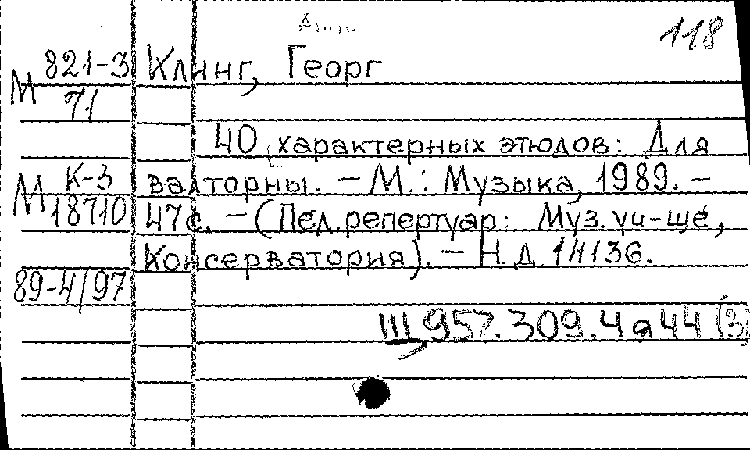 118
М 821-3 Клинг, Георг
71
40 характерных этюдов: Для
М К-3 валторны. – М.: Музыка, 1989. –
18710 47с. – (Пед.репертуар: Муз. уч-ще,
Консерватория). – Н.д. 14136.
89-4/97
Ш957.309.4я44 (3)